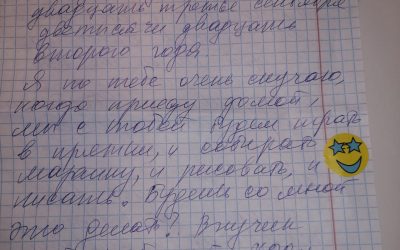 двадцать третье сентября
две тысячи двадцать
второго года
Я по тебе очень скучаю,
когда приеду домой,
мы с тобой будем играть
в крестики, и собирать
мозаику, и рисовать, и
писать. Будешь со мной
это делать?